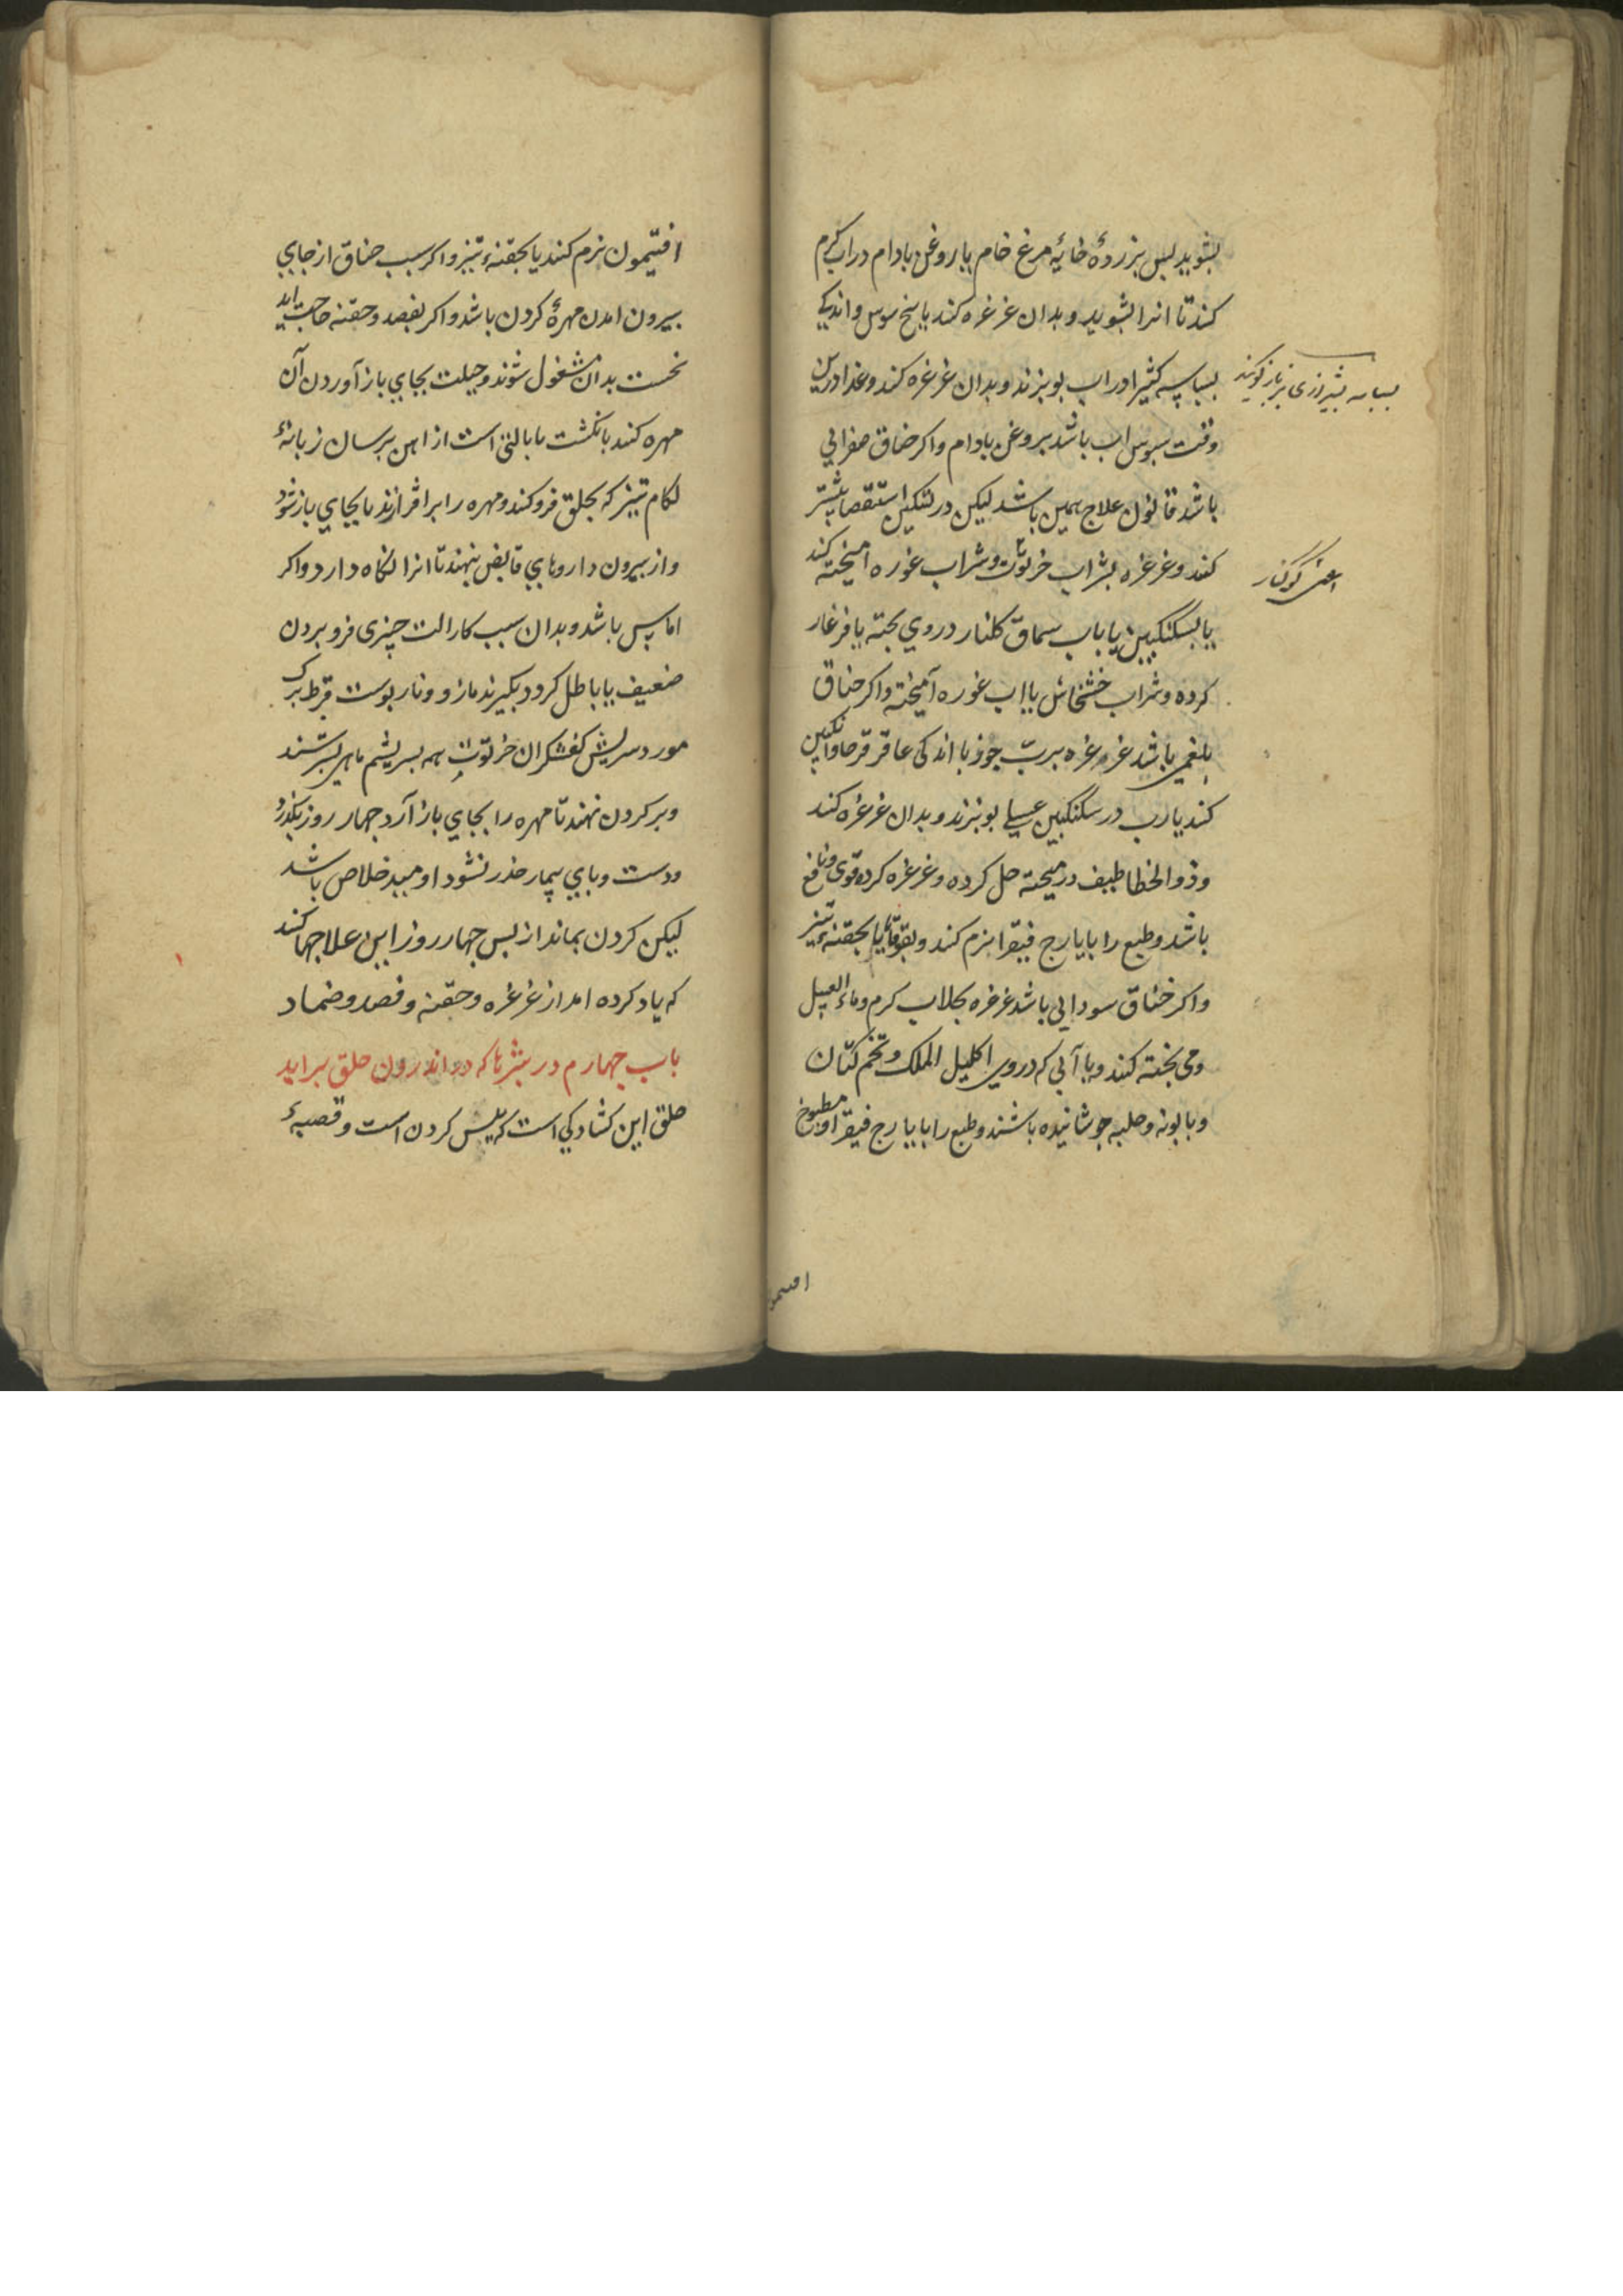 بشوید بس بزردهٔ خایهٔ مرغ خام یا روغن بادام در اب کرم
کند تا انرا بشوید و بدان غرغره کند یا بیخ سوس و اندکی
بسباسه کثیرا در اب بویزند و بدان غرغره کند و غذا درین
وقت سبوس اب باشد بروغن بادام واکر خناق صفرایی
باشد قانون علاج همین باشد لیکن در تسکین استقصا بیشتر
کنند و غرغره بشراب خرتوت و شراب غوره امیخته کند
یا بسکنکبین یا باب سماق کلنار در وی بخته یا فرغار
کرده و شراب خشخاش با اب غوره آمیخته واکر خناق
بلغمی باشد غرغره برب جوز با اندکی عاقرقرحا وانکبین
کند یا رب در سکنکبین عسلی بویزند و بدان غرغره کند
وذو الخطاطیف در میبخته حل کرده و غرغره کرده قوی و نافع
باشد و طبع را بایارج فیقرا نرم کند و بقوقایا یا بحقنهٔ تیز
واکر خناق سودایی باشد غرغره بجلاب کرم و ماء العسل
و می بخته کنند و با آبی که در وی اکلیل الملک و تخم کتان
و بابونه و حلبه جوشانیده باشند و طبع را بایارج فیقرا و مطبوخ
بسباسه بشیرازی بزباز کویند
اعنی کوکنار
افتیمون نرم کنند یا بحقنهٔ تیز واکر سبب خناق از جای
بیرون امدن مهرهٔ کردن باشد واکر بفصد و حقنه حاجت اید
نخست بدان مشغول شوند و حیلت بجای باز آوردن آن
مهره کنند بانکشت یا بالتی است از اهن برسان زبانهٔ
لکام تیز که بحلق فرو کند و مهره را برافرازند تا بجای باز شود
واز بیرون داروهای قابض بنهند تا انرا نکاه دارد واکر
اماس باشد و بدان سبب کار الت چیزی فرو بردن
ضعیف یا باطل کردد بکیرند مازو و نار بوست قرط برک
مورد سریش کفشکران خرتوت همه بسریشم ماهی بسرشند
و بر کردن نهند تا مهره را بجای باز آرد جهار روز بکذرد
ودست و بای بیمار خدر نشود اومید خلاص باشد
لیکن کردن بماند از بس جهار روز این علاجها کنند
که یاد کرده امد از غرغره و حقنه و فصد و ضماد
باب جهارم در بثرها که در اندرون حلق براید
حلق این کشادکی است که بس کردن است و قصبهٔ